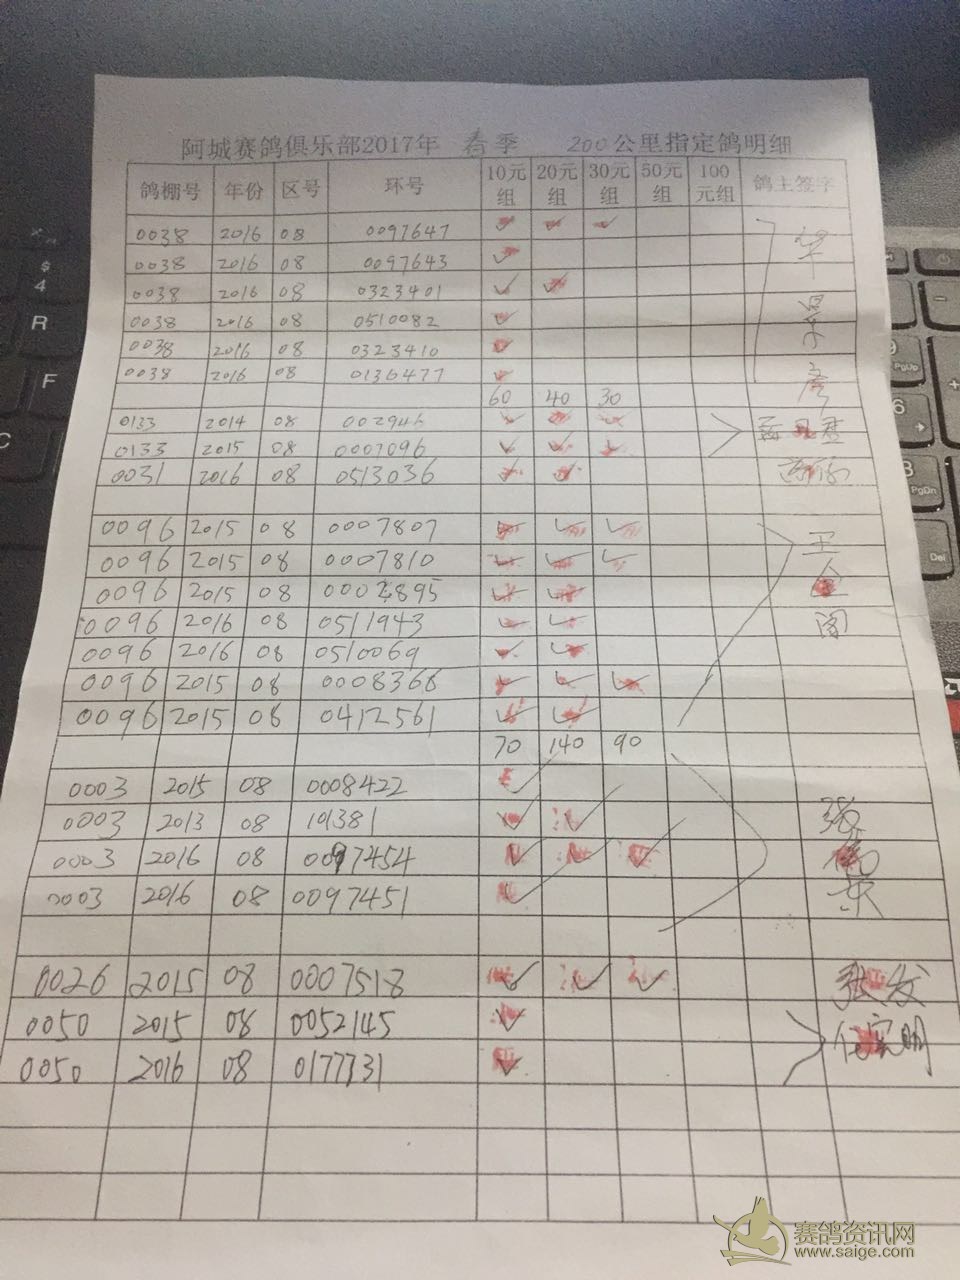 阿城赛鸽俱乐部2017年 春季 200公里指定鸽明细
鸽棚号 年份 区号 环号 10元组 20元组 30元组 50元组 100元组 鸽主签字
0038 2016 08 0097647 ✓ ✓ ✓
0038 2016 08 0097643 ✓
0038 2016 08 0323401 ✓ ✓
0038 2016 08 0510082 ✓
0038 2016 08 0323410 ✓
0038 2016 08 0136477 ✓
60 40 30
0133 2014 08 002946 ✓ ✓ ✓
0133 2015 08 0007096 ✓ ✓ ✓
0031 2016 08 0513036 ✓ ✓
0096 2015 08 0007807 ✓ ✓ ✓
0096 2015 08 0007810 ✓ ✓ ✓ 王
0096 2015 08 0002895 ✓ ✓
0096 2016 08 0511943 ✓ ✓
0096 2016 08 0510069 ✓ ✓
0096 2015 08 0008368 ✓ ✓ ✓
0096 2015 08 0412561 ✓ ✓
70 140 90
0003 2015 08 0008422 ✓
0003 2013 08 101381 ✓ ✓ 张
0003 2016 08 0097454 ✓ ✓ ✓
0003 2016 08 0097451 ✓
0026 2015 08 0007518 ✓ ✓ ✓ 张发
0050 2015 08 0052145 ✓
0050 2016 08 0177731 ✓
赛鸽资讯网
www.saige.com